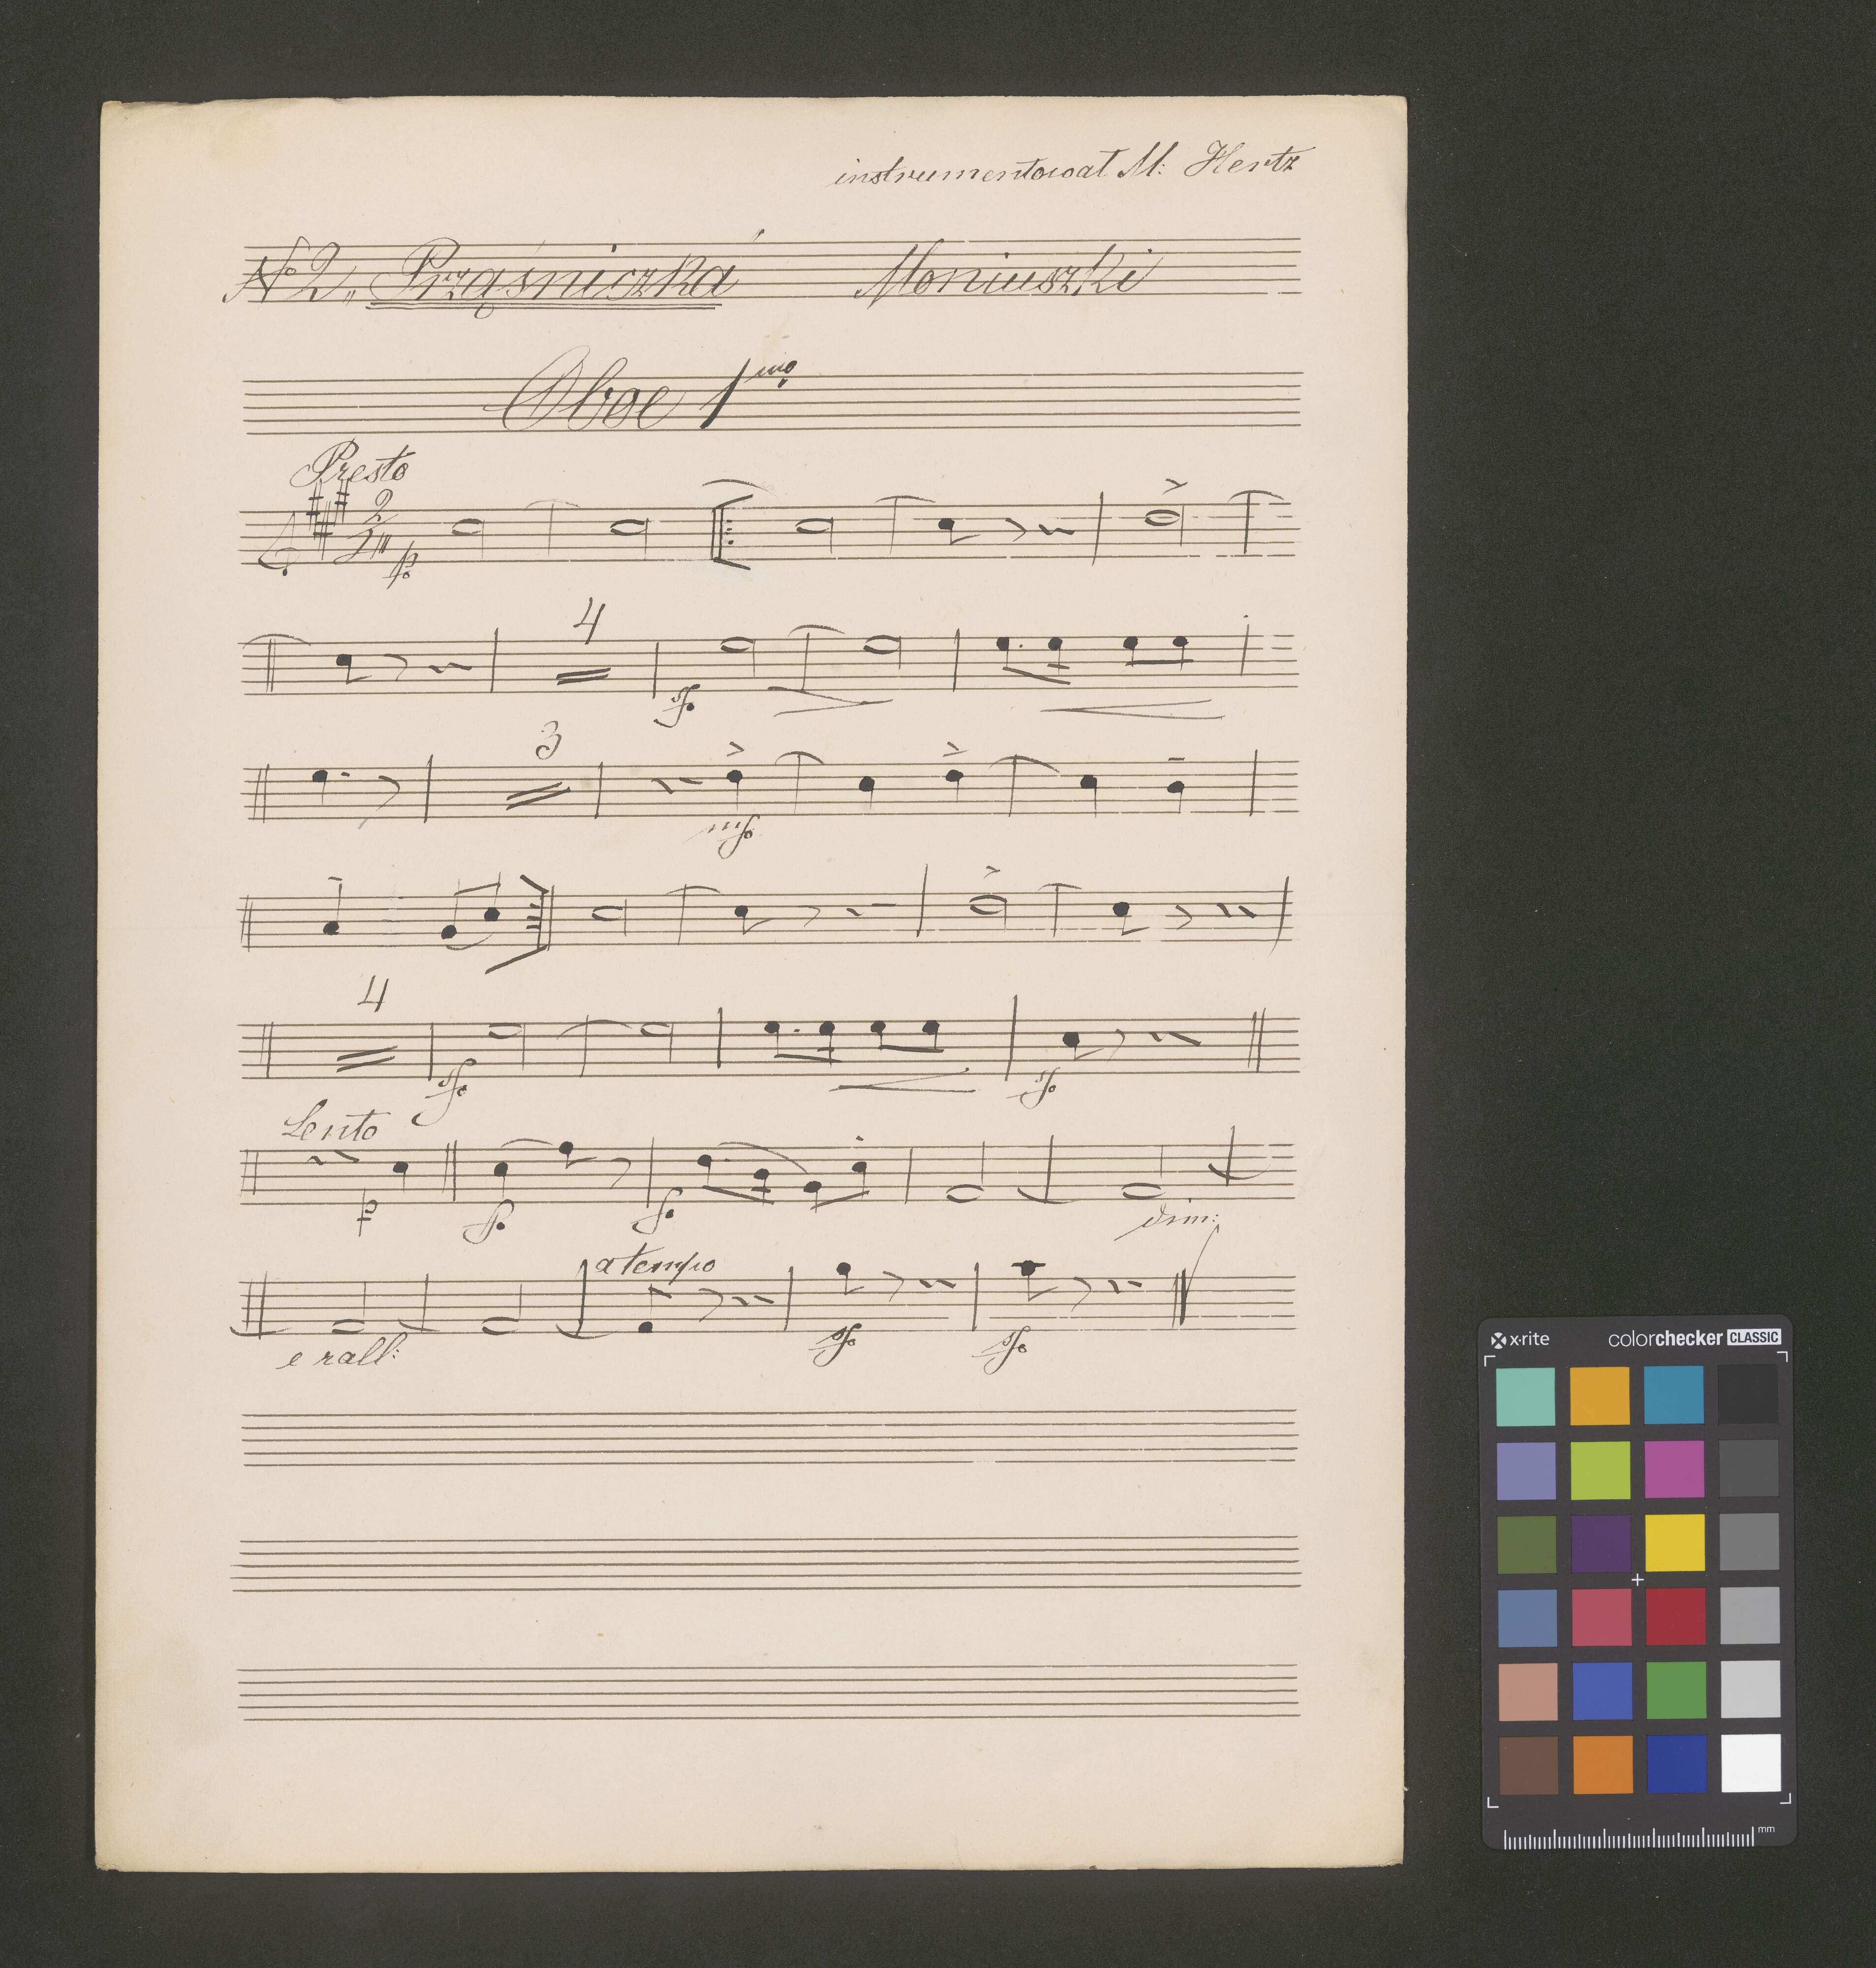 instrumentował M: Hertz
№ 2 „Prząśniczka" Moniuszki
Oboe 1mo
Presto
2/4 p.
4
sf.
3
mf.
4
sf. sf.
Lento
p sf. sf. dim:
a tempo
e rall: sf. sf.
x·rite colorchecker CLASSIC
mm